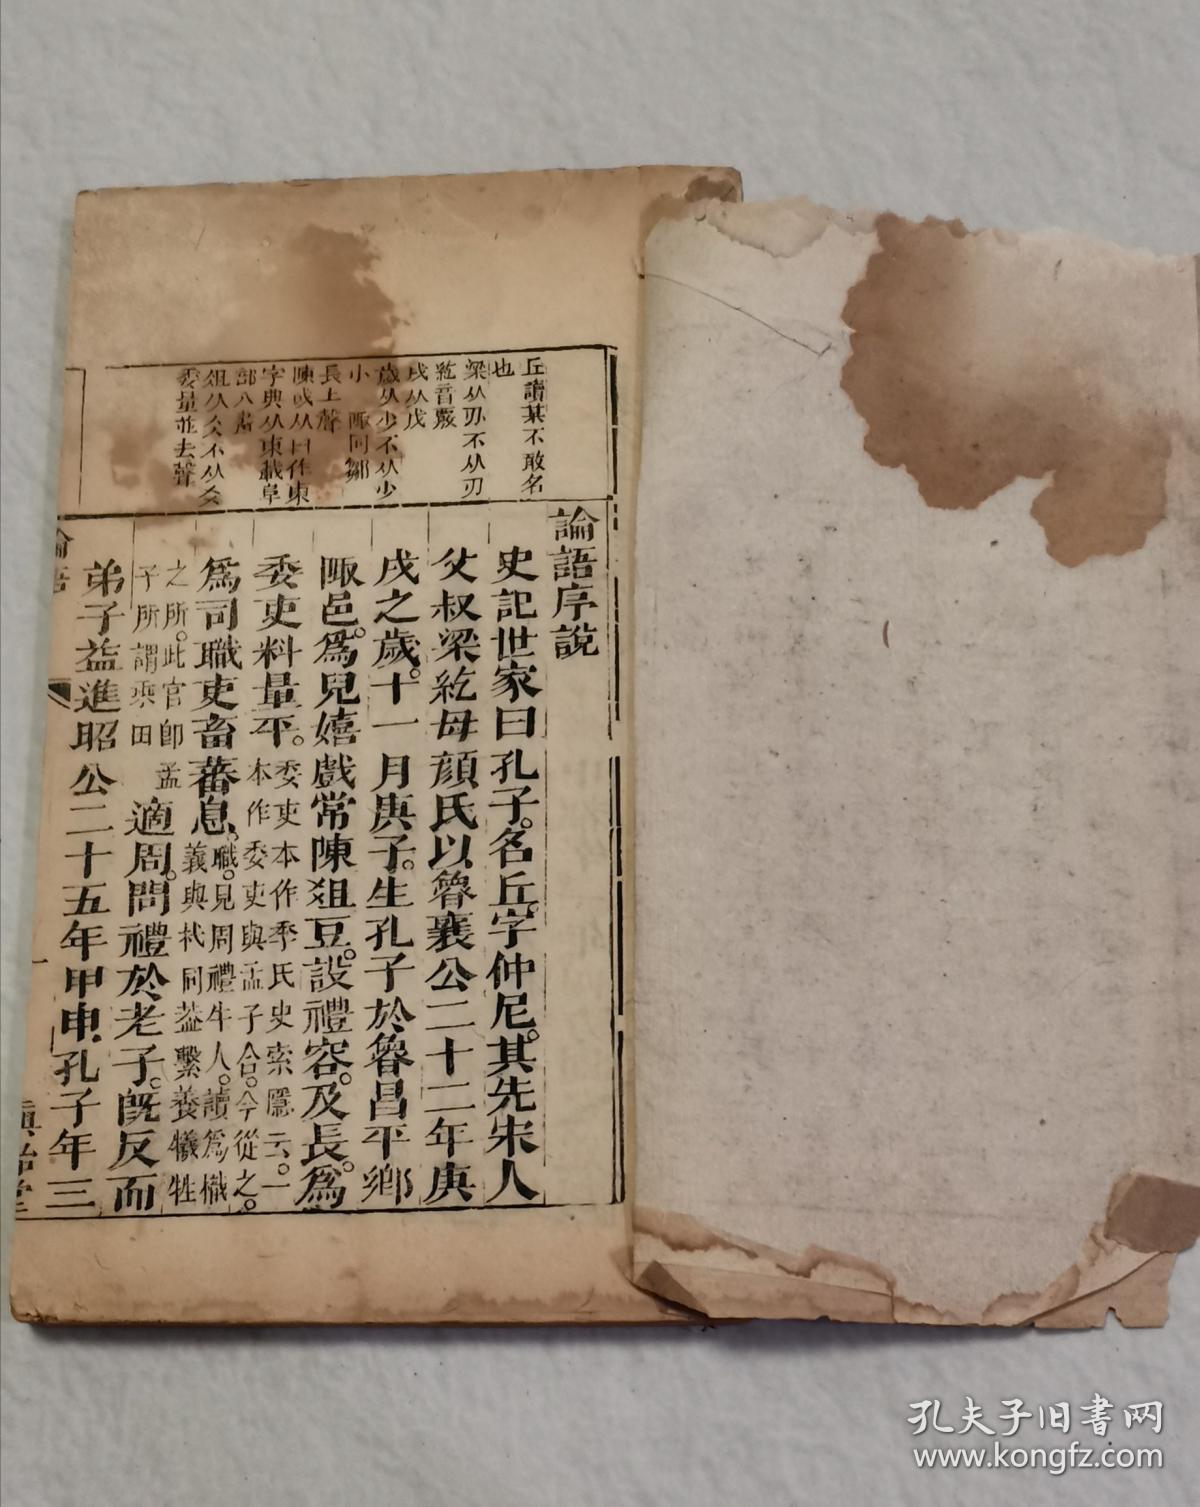 丘讀某不敢名
也
梁从刅不从刃
紇音覈
戌从戊
歲从少不从少
小 陬同鄹
長上聲
陳或从日作東
字典从東載阜
部八畫
俎从仌不从爻
委量並去聲
論語序說
史記世家曰孔子。名丘。字仲尼。其先宋人
父叔梁紇母顏氏以魯襄公二十二年庚
戌之歲。十一月庚子。生孔子於魯昌平鄉
陬邑。爲兒嬉戲常陳俎豆。設禮容。及長。爲
委吏料量平。
委吏本作季氏史索隱云。一
本作委吏與孟子合。今從之。
爲司職吏畜蕃息。
職。見周禮牛人。讀爲樴
義與杙同蓋繫養犧牲
之所。此官卽孟
子所謂乘田
適周。問禮於老子。旣反而
弟子益進昭公二十五年甲申。孔子年三
論語
一
慎詒堂
孔夫子旧书网
www.kongfz.com